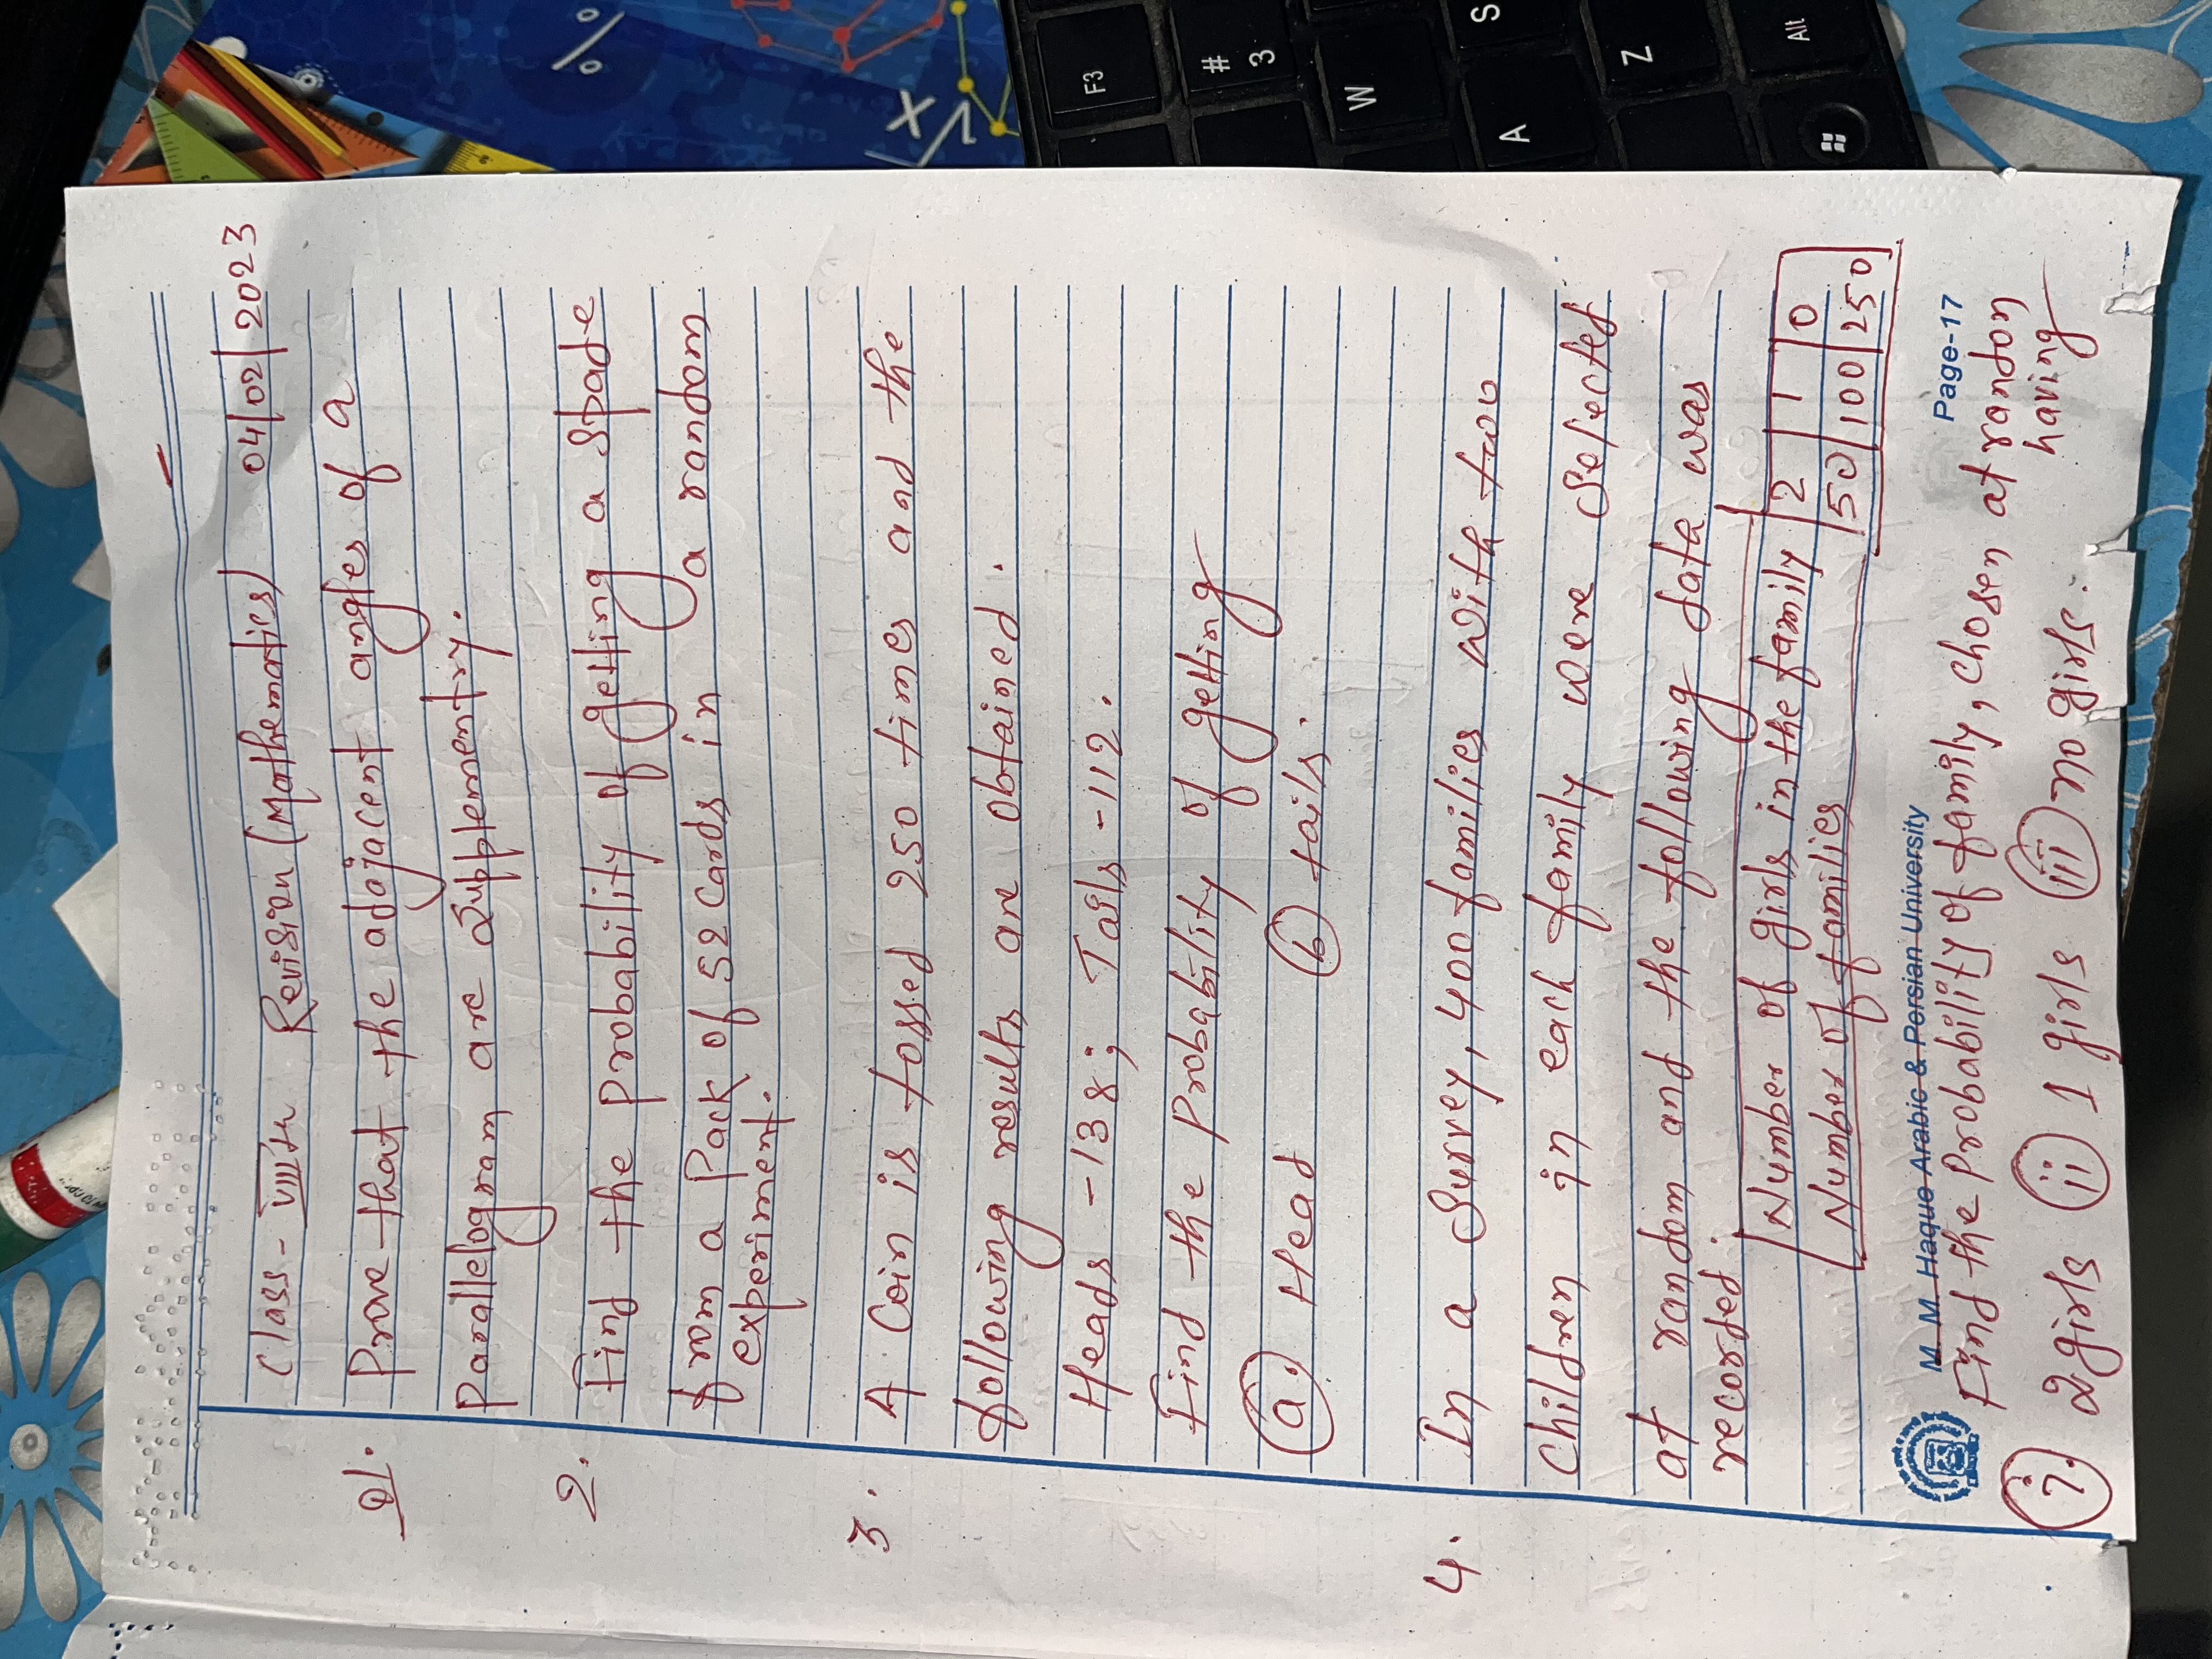 Class - VIIIth Revision (Mathematics) 04/02/2023
Q1. Prove that the adojacent angles of a
Parallelogram are Supplementry.
2. Find the Probability of getting a Spade
from a Pack of 52 Cards in a random
experiment.
3. A Coin is tossed 250 times and the
following results are obtained.
Heads - 138; Tails - 112.
Find the Probability of getting
(a). Head (b) tails.
4. In a Survey, 400 families with two
Children in each family were Selected
at random and the following data was
recorded.
Number of girls in the family | 2 | 1 | 0
Number of families | 50 | 100 | 250
M. M. Haque Arabic & Persian University Page-17
Find the Probability of family, chosen at randon
having
(i.) 2 girls (ii) 1 girls (iii) no girls.
%
√x
F3
#
3
W
S
A
Z
Alt